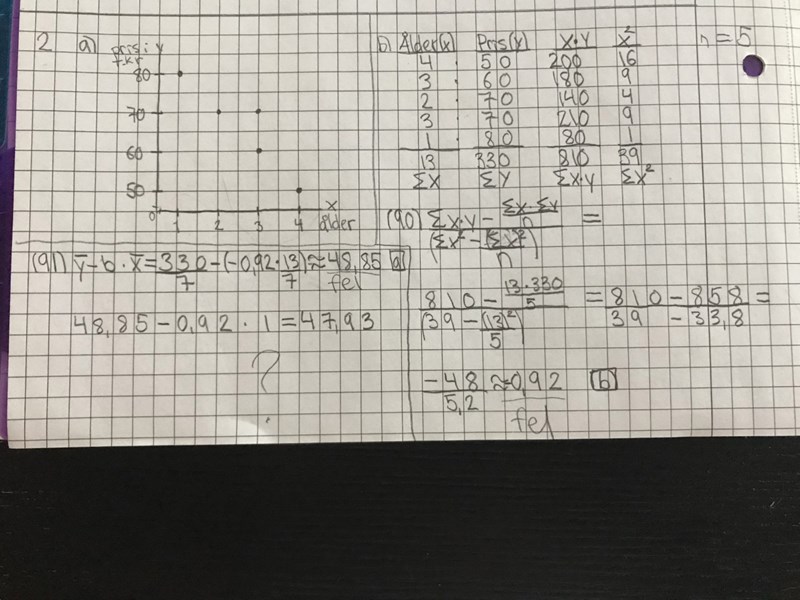 2 a) pris i y
t.kr
80
70
60
50
0 1 2 3 4 x
ålder
b) Ålder(x) Pris(y) x·y x² n = 5
4 50 200 16
3 60 180 9
2 70 140 4
3 70 210 9
1 80 80 1
13 330 810 39
Σx Σy Σx·y Σx²
(90) Σx·y − Σx·Σy/n =
(Σx² − (Σx)²/n)
810 − 13·330/5 = 810 − 858 =
(39 − (13)²/5) 39 − 33,8
−48/5,2 ≈ 0,92 b
fel
(91) ȳ − b·x̄ = 330/7 − (−0,92·13/7) ≈ 48,85 a
fel
48,85 − 0,92 · 1 = 47,93
?